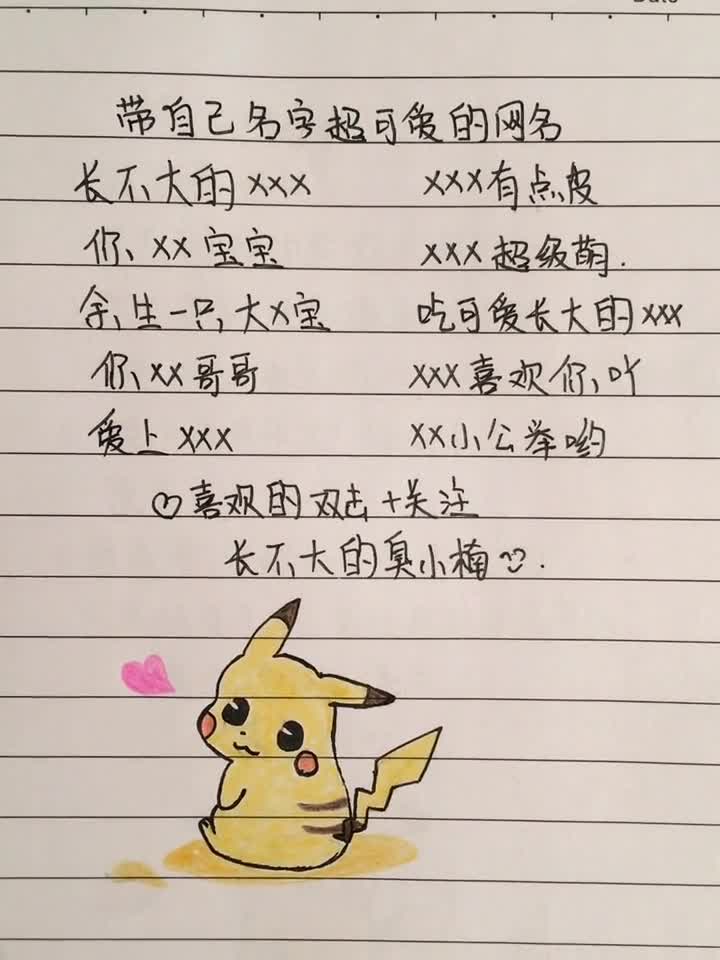 Date
带自己名字超可爱的网名
长不大的xxx xxx有点皮
你、xx宝宝 xxx超级萌.
余生一只大x宝 吃可爱长大的xxx
你、xx哥哥 xxx喜欢你吖
爱上xxx xx小公举哟
♡喜欢的双击+关注
长不大的臭小楠